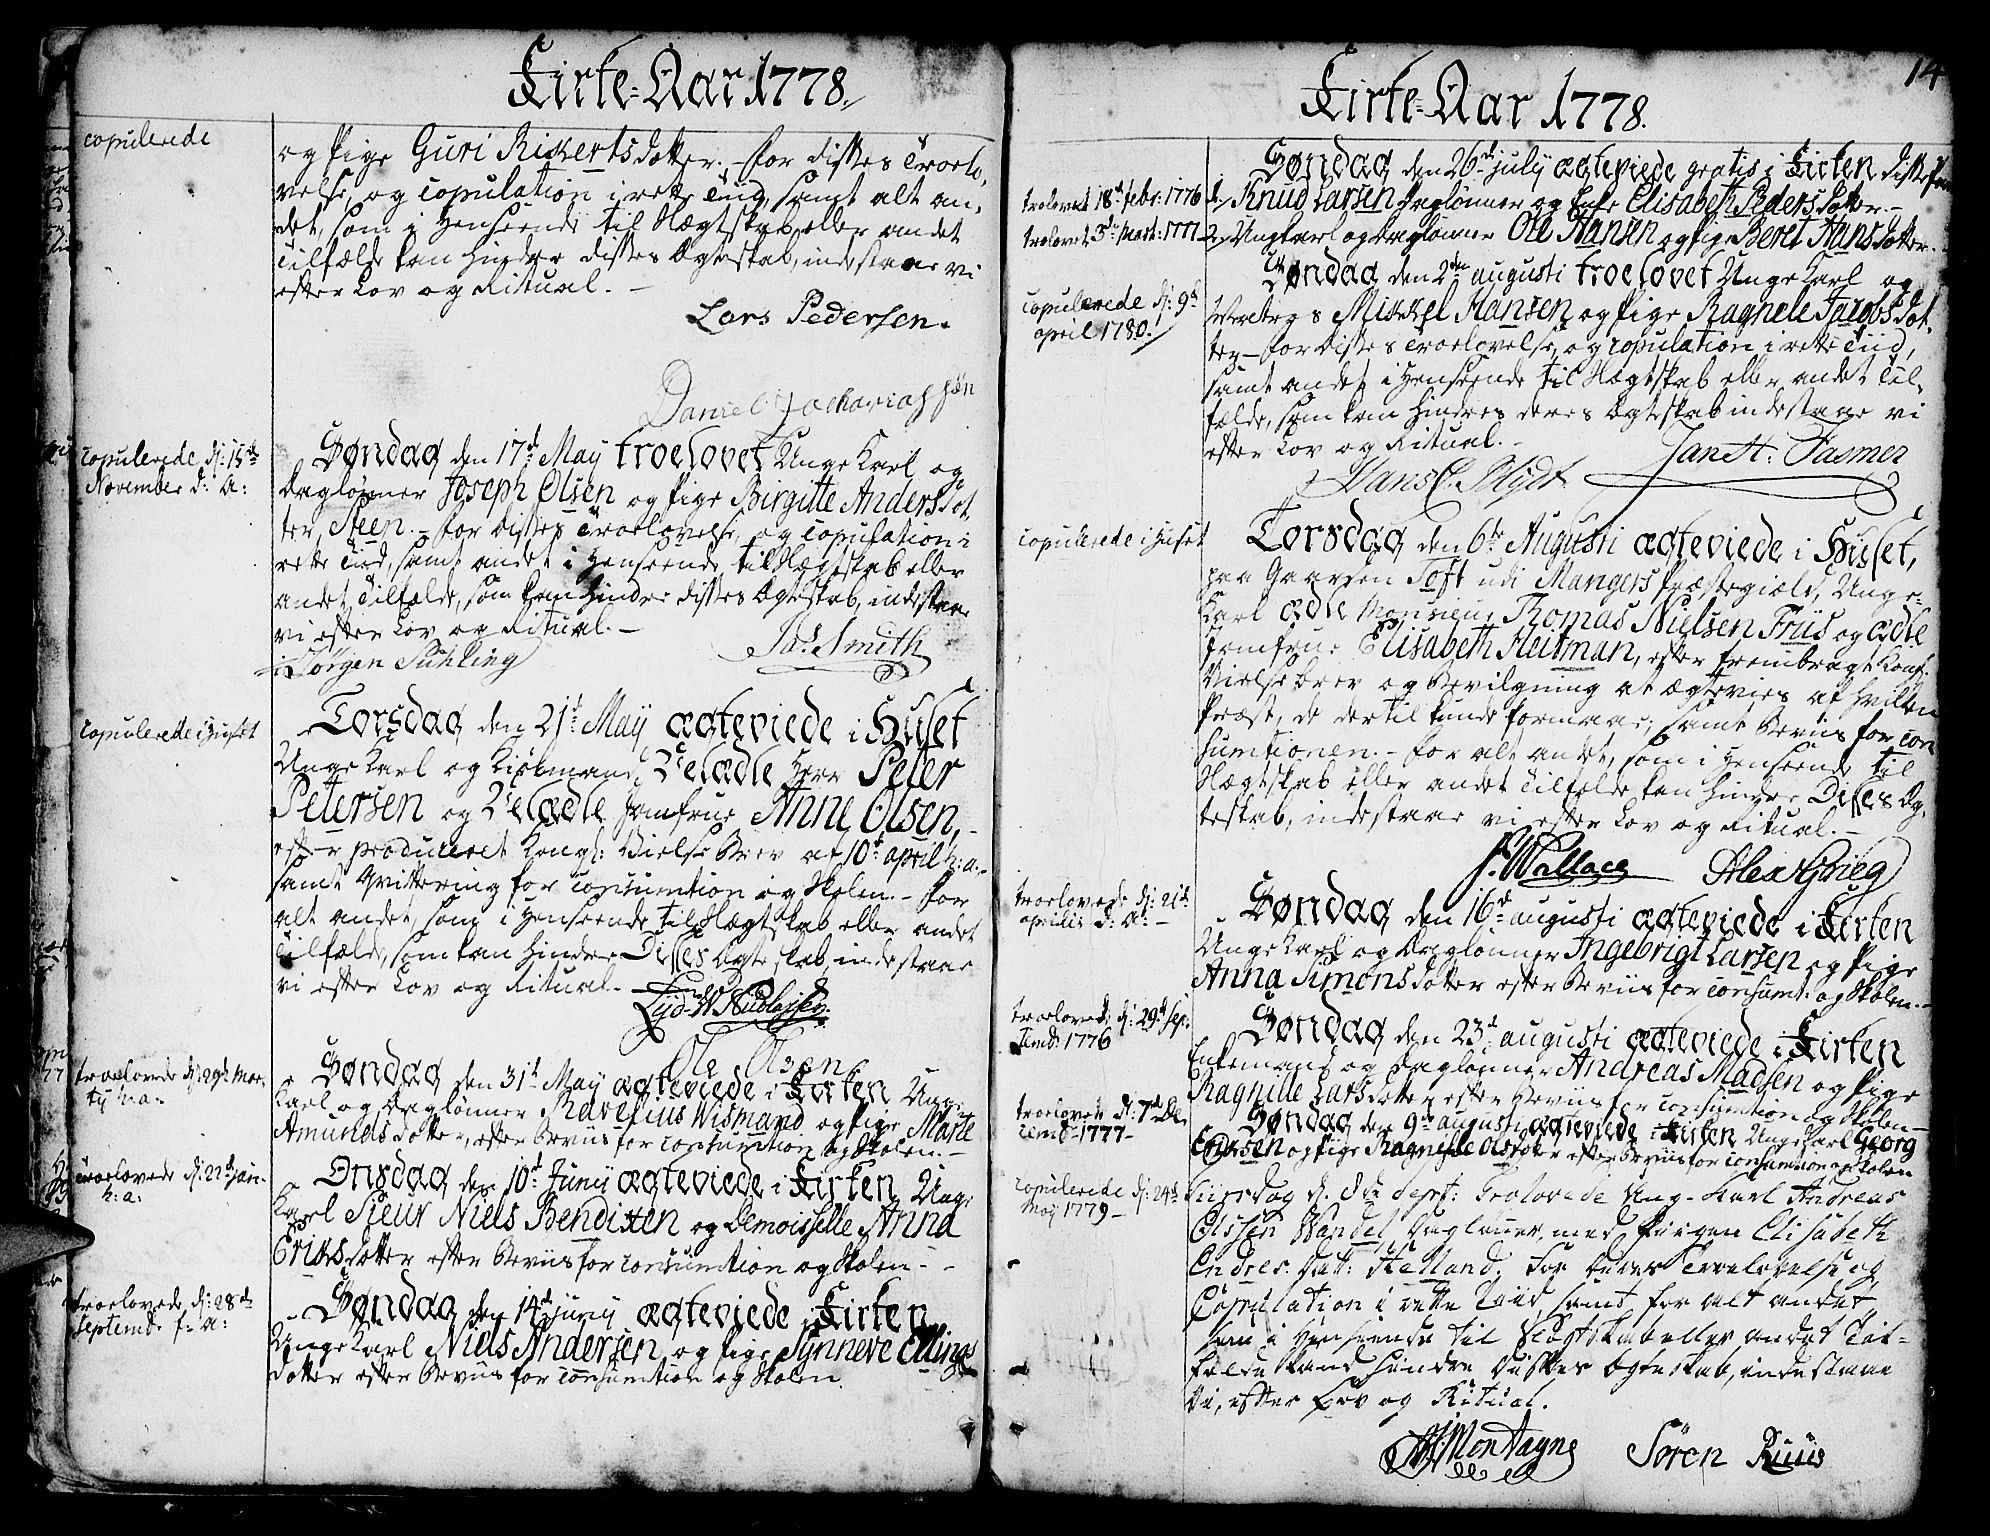 Kirke-Aar 1778.
copulerede
og Pige Guri Rickertsdotter. - for disses Troelo-
velse, og copulation i rette Tiid, samt alt an-
det, som i Henseende til Slægtskab eller andet
Tilfælde kan hindre disses Ægteskab, indestaae vi
efter Lov og Ritual. -
Lars Pedersen.
Daniel Zachariassøn
copulerede d: 15de
November d: A:
Søndag den 17d May troelovet Unge Karl og
Dagløner Joseph Olsen og Pige Birgitte Andersdot-
ter Steen. - for disses Troelovelse, og copulation i
rette Tiid, samt andet i Henseende til Slægtskab eller
andet Tilfælde, som kan hindre disses Ægteskab, indestaae
vi efter Lov og Ritual. -
Jørgen Suhling
Jas. Smith
copulerede i Huset
Torsdag den 21d May ægteviede i Huset
Unge Karl og Kiøbmand, Velædle Herr Peter
Petersen og Velædle Jomfrue Anne Olsen,
efter produceret Kongl: Vielse Brev af 10d april h: a:
samt Qvittering for consumtion og Skolen. - for
alt andet, som i Henseende til Slægtskab eller andet
Tilfælde, som kan hindre Disses Ægteskab, indestaae
vi efter Lov og Ritual. -
Ole Olsen
troelovede d: 29d Mar-
tij h: a:
Søndag den 31d May ægteviede i Kirken Unge
Karl og Dagløner Wismand og Pige Marte
Amundsdotter, efter Beviis for consumtion og Skolen. -
troelovede d: 22d Jan-
h: a:
Onsdag den 10d Junij ægteviede i Kirken Unge
Karl Sieur Niels Bendixen og Demoisselle Anna
Eriksdotter efter Beviis for consumtion og Skolen - -
troelovede d: 28de
Septembr f: a:
Søndag den 14d junij ægteviede i Kirken
Unge Karl Niels Andersen og Pige Synneve Ellings
dotter efter Beviis for consumtion og Skolen.
14
Kirke-Aar 1778.
Søndag den 26d julij ægteviede gratis i Kirken disse Par
trolovet 18d febr: 1776
1, Knud Larsen Dagløner og Enke Elisabeth Pedersdotter. -
trolovet 3d Mart: 1777
2, Ungkarl og Dagløner Ole Hansen og Pige Beret Hansdotter.
Søndag den 2den augusti troelovet Unge Karl og
copulerede d: 9d
april 1780.
Mickel Hansen og Pige Ragnele Jacobsdot-
ter - for disses Troelovelse, og copulation i rette Tiid,
samt andet i Henseende til Slægtskab eller andet Til-
fælde, som kan hindres deres Ægteskab indestaae vi
efter Lov og Ritual. -
Jan H: Fasmer
copulerede i Huset
Torsdag den 6te Augusti ægteviede i Huset,
paa Gaarden Toft udi Mangers Præstegield, Unge
Karl ædle Monsieur Thomas Nielsen Friis og ædle
Jomfrue Elisabeth Heitman, efter frembragt Kongl:
Vielse brev og Bevilgning at ægtevies af hvilken
Præst, de dertil kunde formaae; samt Beviis for con
sumtionen. - for alt andet, som i Henseende til
Slægtskab eller andet Tilfælde kan hindre Disses Æg-
teskab, indestaae vi efter Lov og Ritual. -
J. Wallace
Alex Grieg
troelovede d: 21d
aprilis d: A: -
Søndag den 16d augusti ægteviede i Kirken
Unge Karl og Dagløner Ingebrigt Larsen og Pige
Anna Simonsdotter efter Beviis for consumt: og Skolen. -
troelovede d: 29d Sep-
temb: 1776
Søndag den 23d augusti ægteviede i Kirken
Enkemand og Dagløner Andreas Madsen og Pige
Ragnilde Larsdotter efter Beviis for consumtion og Skolen -
troelovet d: 7d De-
cemb- 1777 -
Søndag den 9d augusti ægteviede i Kirken Unge Karl Georg
og Pige Ragnilde Olsdotter efter Beviis for consumtion og Skolen
copulerede d: 24d
Maj 1779 -
Tiirsdag d. 8de Sept: Trolovede Ung-Karl Andreas
Wandel, Dagløner, med Piigen Elisabeth
Endres. Dat: Helland. For deres Troelovelse og
Copulation i rette Tiid, samt for alt andet,
som i Henseende til Slægtskab eller andet Til-
felde kand hindre disses Ægteskab, indestaae
Vi, efter Lov og Ritual.
Montagne
Søren Ruus